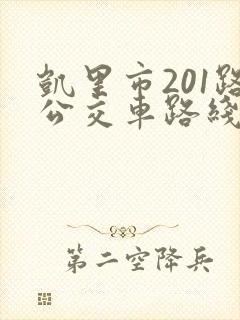 凱里市201路
公交車路綫
第二空降兵